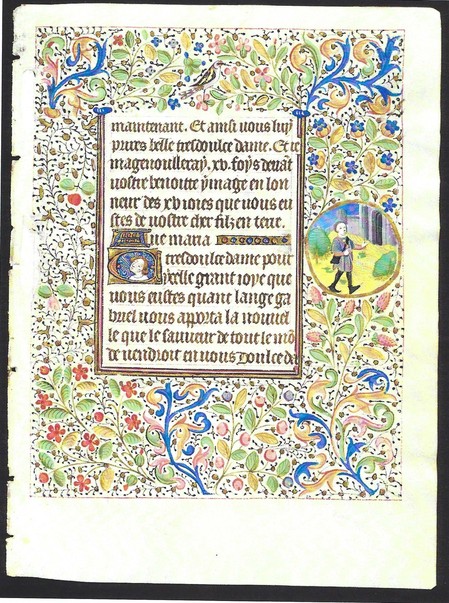 maintenant. Et ainsi uous suy
priues belle tresdoulce dame. Et ie
magenoilleray. xv. foys deuāt
uostre benoitte ymage en lon
neur des xv ioies que uous eu
stes de uostre chier filz en terre.
Aue maria
E tresdoulce dame pour
ycelle grant ioye que
uous eustes quant lange ga
briel uous apporta la nouuel
le que le sauueur de tout le mō
de uendroit en uous Doulce da